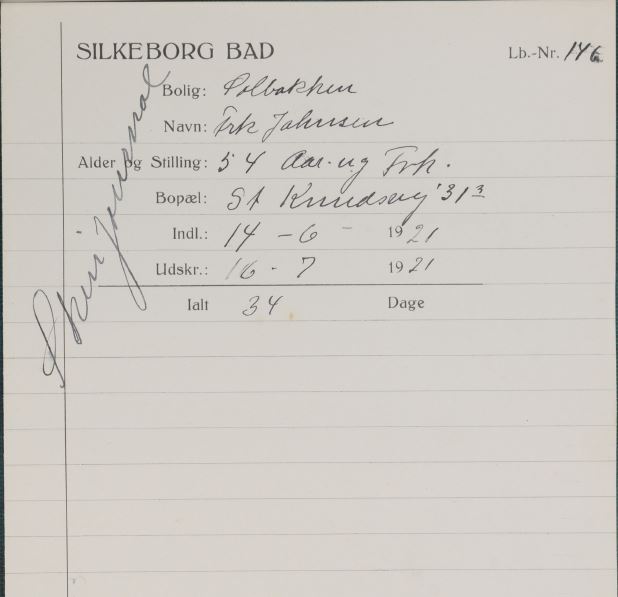 SILKEBORG BAD
Lb.-Nr. 146
Bolig: Solbakken
Navn: Frk Johnsen
Alder og Stilling: 54 Aar. ug Frk.
Bopæl: St Knudsvej 31 3
Indl.: 14 - 6 - 1921
Udskr.: 16 - 7 1921
Ialt 34 Dage
Skin journal